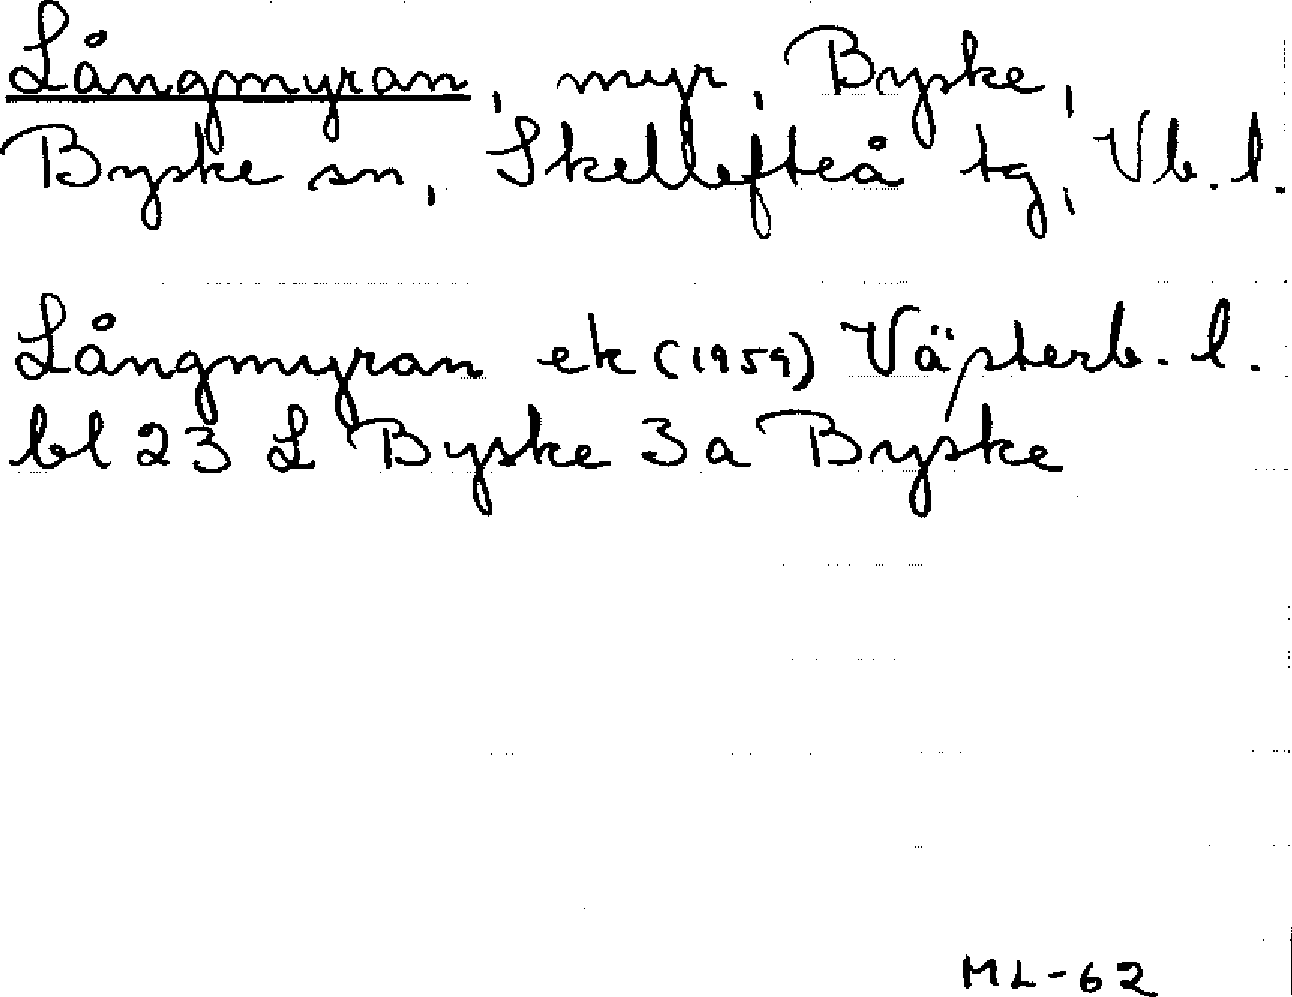 Långmyran, myr, Byske,
Byske sn, Skellefteå tg, Vb. l.
Långmyran ek (1959) Västerb. l.
bl 23 L Byske 3a Byske
ML-62